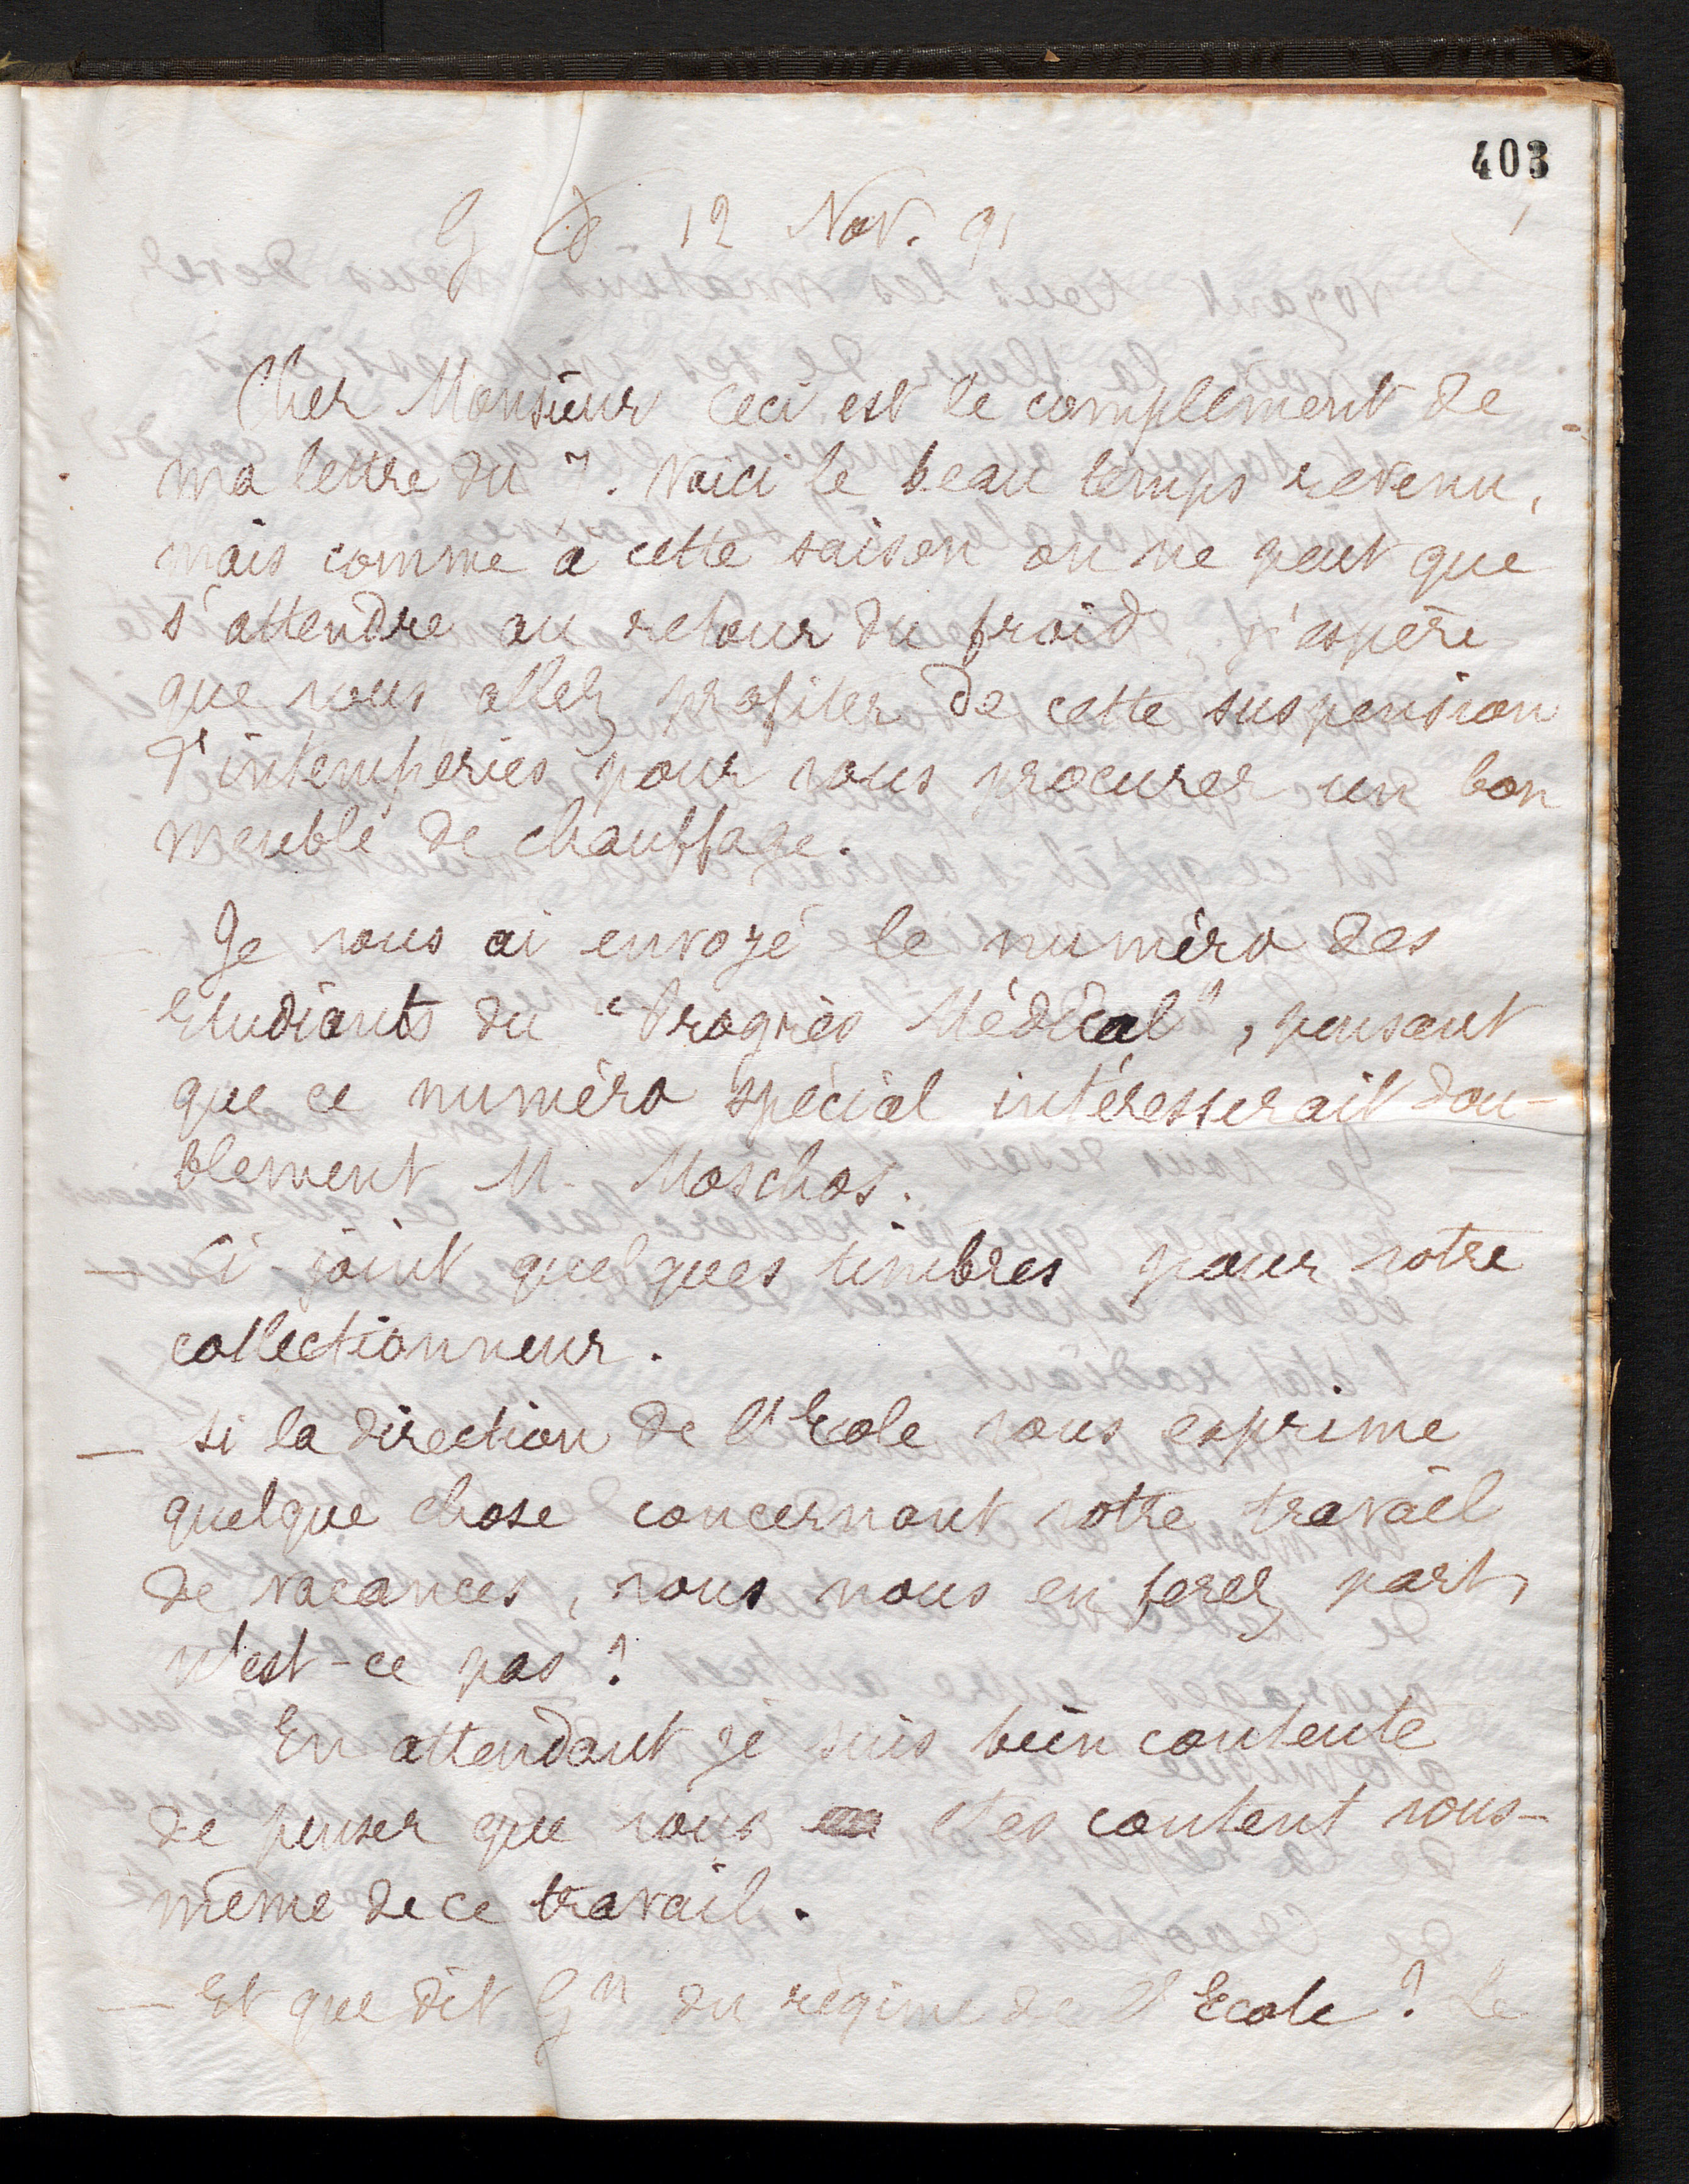 403
G 12 Nov. 91
Cher Monsieur ceci est le complément de
ma lettre du 7. Voici le beau temps revenu,
mais comme à cette saison on ne peut que
s'attendre au retour du froid, j'espère
que vous allez profiter de cette suspension
d'intempéries pour vous procurer un bon
meuble de chauffage.
Je vous ai envoyé le numéro des
Etudiants du "Progrès Médical", pensant
que ce numéro spécial intéresserait dou-
blement M. Moschos.
— Ci-joint quelques timbres pour votre
collectionneur.
— Si la direction de l'Ecole vous exprime
quelque chose concernant votre travail
de vacances, vous nous en ferez part,
n'est-ce pas?
En attendant je suis bien contente
de penser que vous êtes content vous-
même de ce travail.
— Et que dit Gn du régime de l'Ecole? Le